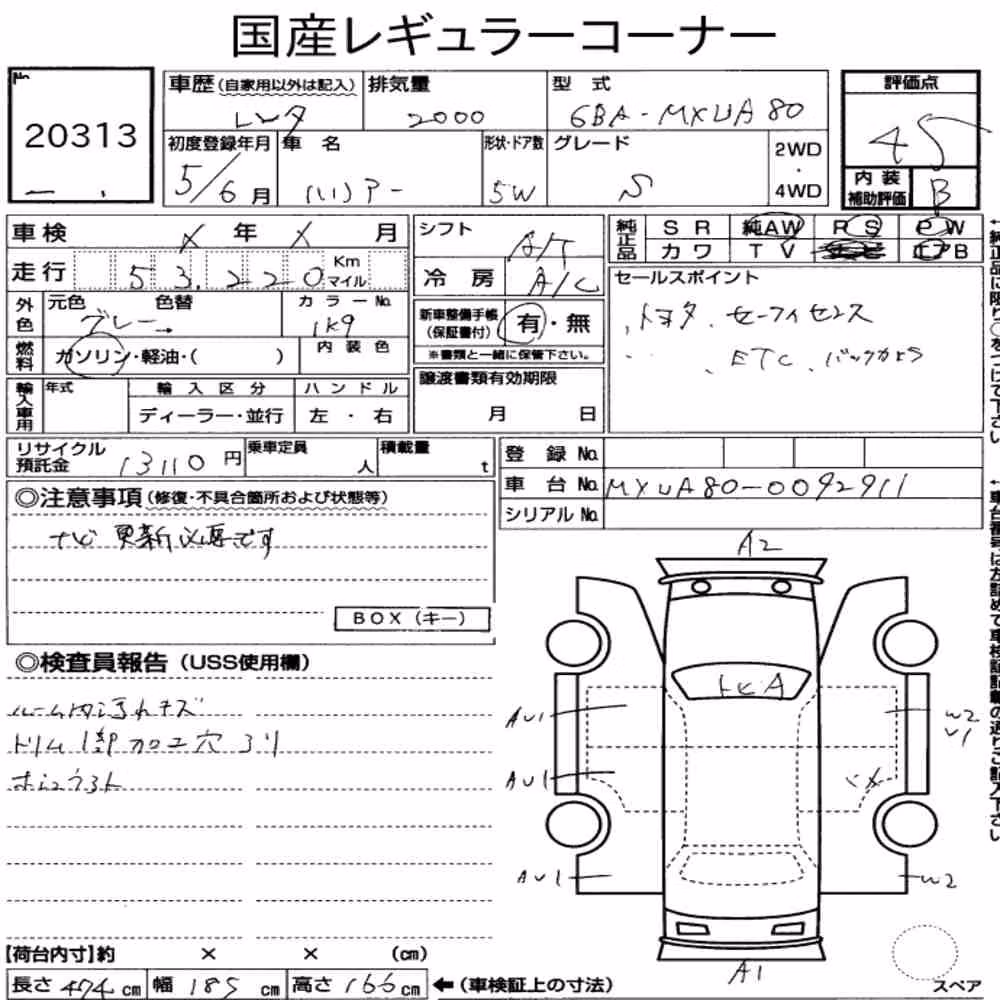 国産レギュラーコーナー
No
20313
車歴(自家用以外は記入)
レンタ
排気量
2000
型 式
6BA-MXUA80
評価点
4.5
初度登録年月
5/6月
車 名
ハリアー
形状・ドア数
5W
グレード
S
2WD
・
4WD
内 装
補助評価
B
車検 X 年 X 月
走行 53,220 Km
マイル
外色
元色 色替
グレー→
カラーNo.
1K9
燃料
ガソリン・軽油・( )
内 装 色
輸入車用
年式
輸 入 区 分
ディーラー・並行
ハ ン ド ル
左 ・ 右
シフト
A/T
冷 房
A/C
新車整備手帳
(保証書付)
有・無
※書類と一緒に保管下さい。
譲渡書類有効期限
月 日
純正品
S R 純AW P S P W
カ ワ T V エアB
セールスポイント
、トヨタ、セーフィセンス
、ETC、バックカメラ
←純正品に限り○をつけて下さい
リサイクル
預託金
13110 円
乗車定員
人
積載量
t
登 録 No.
車 台 No. MXUA80-0092911
シリアル No.
←車台番号は左詰めで車検証記載の通りご記入下さい
◎注意事項(修復・不具合箇所および状態等)
ナビ更新必要です
BOX(キー)
◎検査員報告(USS使用欄)
ルーム内汚れキズ
トリム1部加工穴あり
A2
トビA
AU1
AU1
AU1
W2
U1
X
W2
A1
スペア
【荷台内寸】約 × × (cm)
長さ 474 cm 幅 185 cm 高さ 166 cm ←(車検証上の寸法)